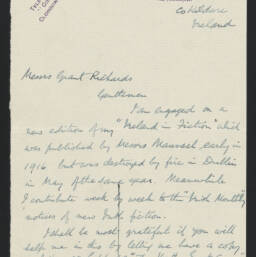 Co Kildare
Ireland
Messrs Grant Richards
Gentlemen
I am engaged on a
new edition of my "Ireland in Fiction" which
was published by Messrs Maunsel early in
1916 but was destroyed by fire in Dublin
in May of the same year. Meanwhile
I contribute week by week to the "Irish Monthly"
notices of new Irish fiction.
I shall be most grateful if you will
help me in this by letting me have a copy